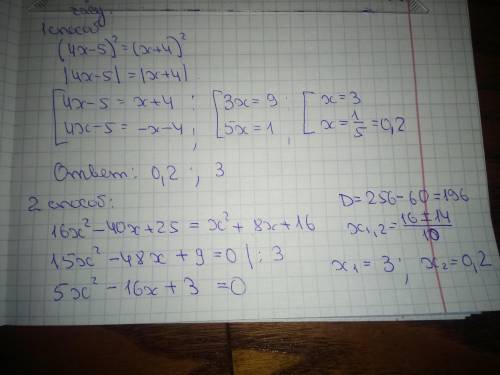 1 способ
(4x-5)²=(x+4)²
|4x-5|=|x+4|
[4x-5=x+4 ; [3x=9 ; [x=3
[4x-5=-x-4 ; [5x=1 ; [x=1/5=0,2
Ответ: 0,2 ; 3
2 способ:
16x²-40x+25=x²+8x+16
15x²-48x+9=0 |:3
5x²-16x+3=0
D=256-60=196
x₁,₂=(16±14)/10
x₁=3 ; x₂=0,2